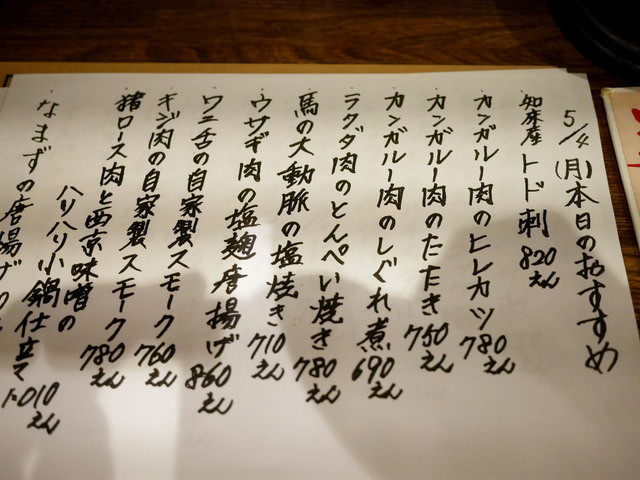 5/4(月)本日のおすすめ
知床産 トド刺 820えん
カンガルー肉のヒレカツ 780えん
カンガルー肉のたたき 750えん
カンガルー肉のしぐれ煮 690えん
ラクダ肉のとんぺい焼き 780えん
馬の大動脈の塩焼き 710えん
ウサギ肉の塩麹唐揚げ 860えん
ワニ舌の自家製スモーク 760えん
キジ肉の自家製スモーク 780えん
猪ロース肉と西京味噌の
ハリハリ小鍋仕立て 1,010えん
なまずの唐揚げの